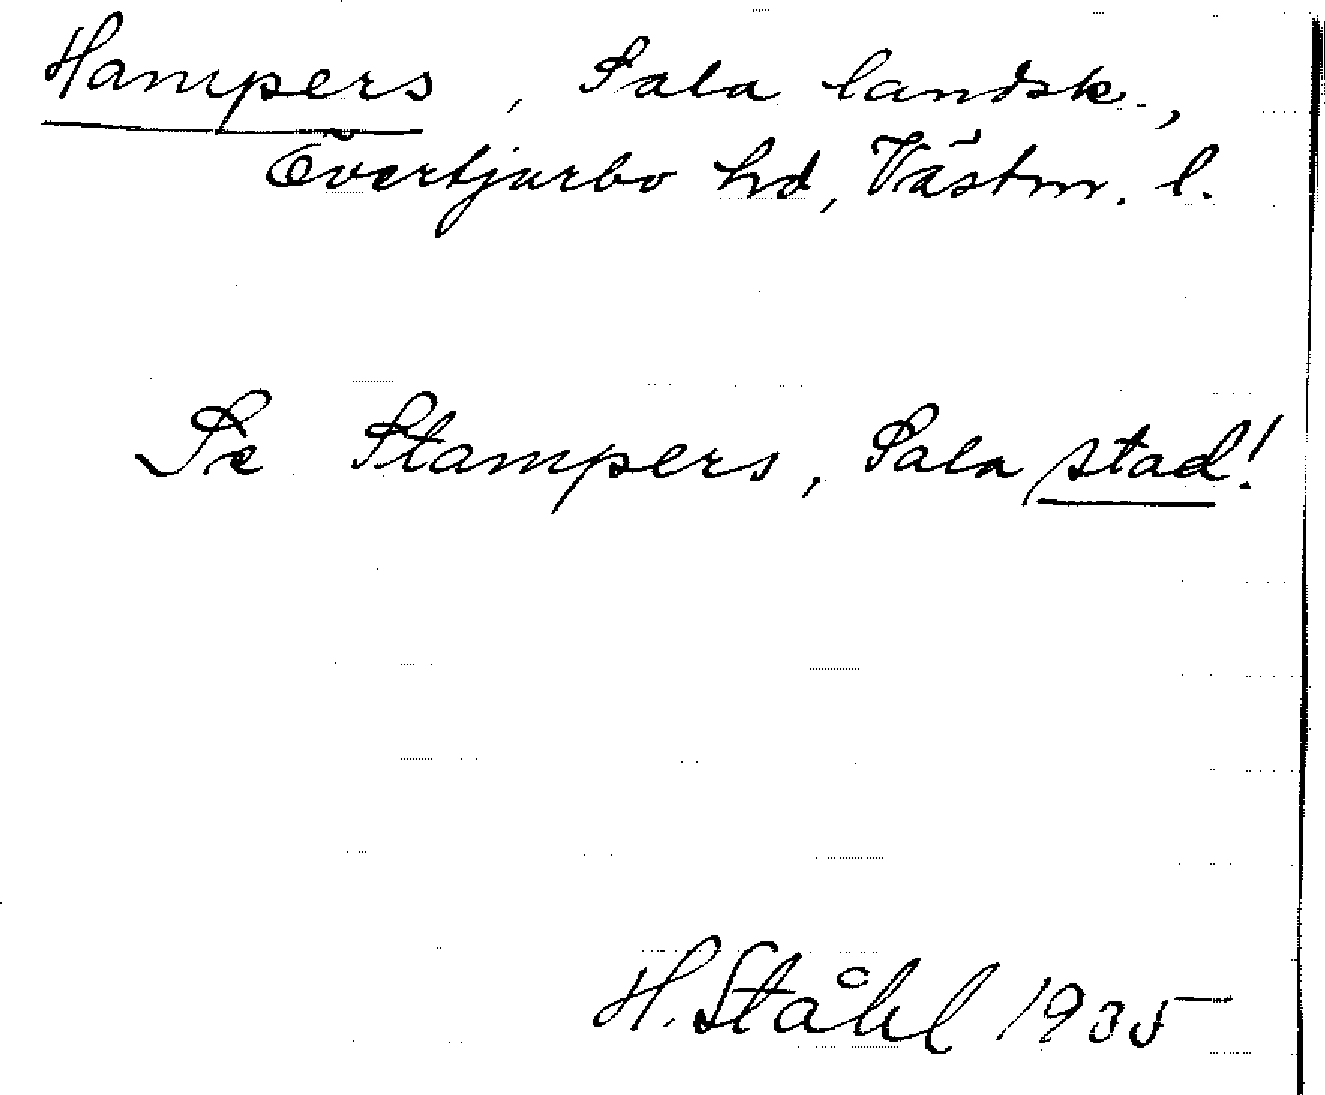 Hampers, Sala landsk.,
Övertjurbo hd, Västm. l.
Se Stampers, Sala stad!
H. Ståhl 1935